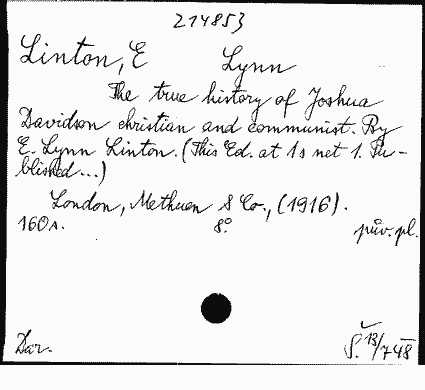 214853
Linton, E Lynn
The true history of Joshua
Davidson christian and communist. By
E. Lynn Linton. (This Ed. at 1s net 1. Pu-
blished...)
London, Methuen & Co., (1916).
160 s. 8° pův. pl.
Dar. 13/748